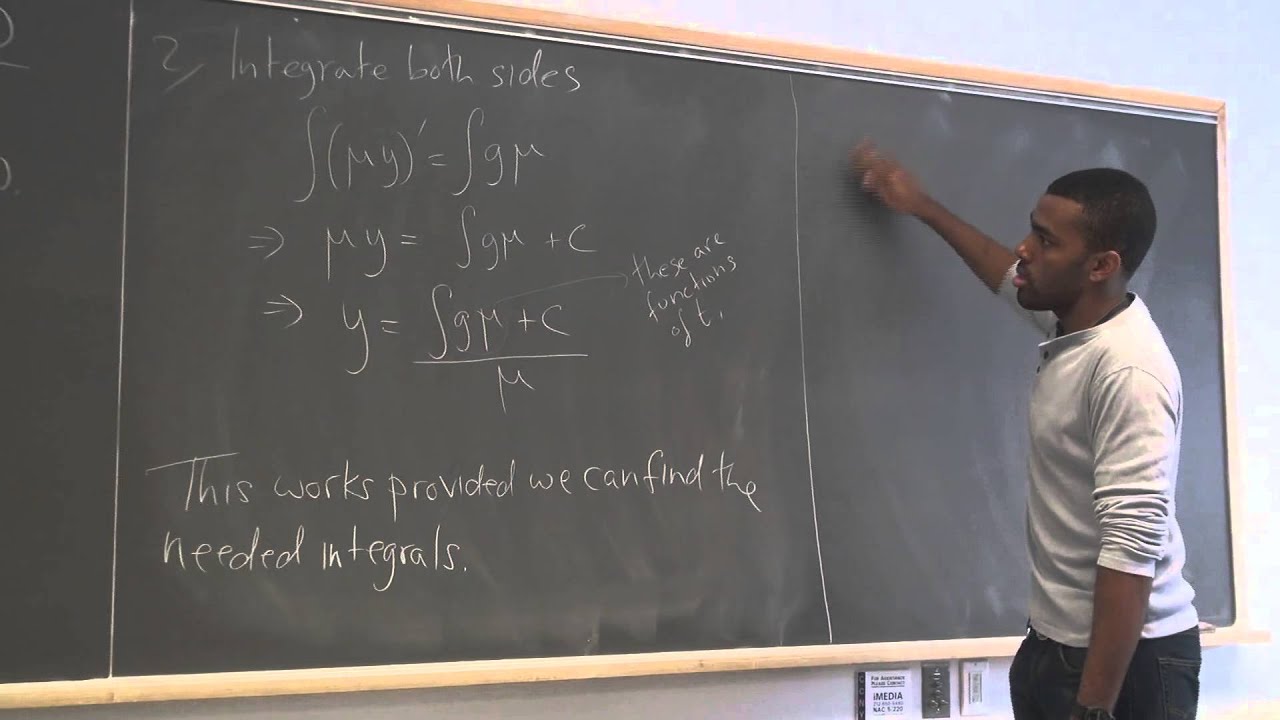 2) Integrate both sides
∫(μy)' = ∫gμ
⇒ μy = ∫gμ + c
⇒ y = ∫gμ + c
μ
these are
functions
of t.
This works provided we can find the
needed integrals.
CCNY
FOR ASSISTANCE
PLEASE CONTACT
iMEDIA
NAC 5/220